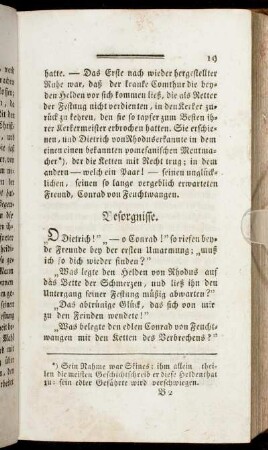 19
hatte. — Das Erste nach wieder hergestellter
Ruhe war, daß der kranke Comthur die bey-
den Helden vor sich kommen ließ, die als Retter
der Festung nicht verdienten, in den Kerker zu-
rück zu kehren, den sie so tapfer zum Besten ih-
rer Kerkermeister erbrochen hatten. Sie erschie-
nen, und Dietrich von Rhodus erkannte in dem
einen einen bekannten pomesanischen Mentma-
cher*), der die Ketten mit Recht trug; in dem
andern — welch ein Paar! — seinen unglück-
lichen, seinen so lange vergeblich erwarteten
Freund, Conrad von Feuchtwangen.
Besorgnisse.
O Dietrich!" „— o Conrad!" so riefen bey-
de Freunde bey der ersten Umarmung; „muß
ich so dich wieder finden?"
„Was legte den Helden von Rhodus auf
das Bette der Schmerzen, und ließ ihn den
Untergang seiner Festung müßig abwarten?"
„Das abtrünnige Glück, das sich von mir
zu den Feinden wendete!"
„Was belegte den edlen Conrad von Feucht-
wangen mit den Ketten des Verbrechens?"
*) Sein Nahme war Skines; ihm allein thei-
len die meisten Geschichtschreiber diese Heldenthat
zu; sein edler Gefährte wird verschwiegen.
B 2